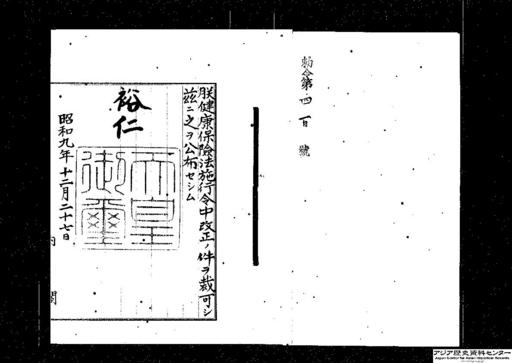 勅令第四百號
朕健康保險法施行令中改正ノ件ヲ裁可シ
茲ニ之ヲ公布セシム
裕仁
天皇
御璽
昭和九年十二月二十七日
内閣
アジア歴史資料センター
Japan Center for Asian Historical Records